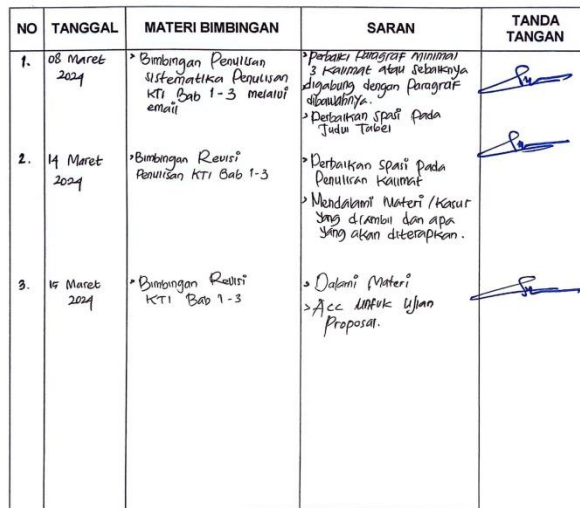 NO TANGGAL MATERI BIMBINGAN SARAN TANDA TANGAN
1. 08 Maret 2024
> Bimbingan Penulisan
sistematika Penulisan
KTI Bab 1-3 melalui
email
> Perbaiki Paragraf minimal
3 Kalimat atau sebaiknya
digabung dengan Paragraf
dibawahnya.
> Perbaikan spasi Pada
Judul Tabel
2. 14 Maret 2024
> Bimbingan Revisi
Penulisan KTI Bab 1-3
> Perbaikan spasi Pada
Penulisan Kalimat
> Mendalami Materi / Kasus
yang diambil dan apa
yang akan diterapkan.
3. 15 Maret 2024
> Bimbingan Revisi
KTI Bab 1-3
> Dalami Materi
> Acc Untuk Ujian
Proposal.